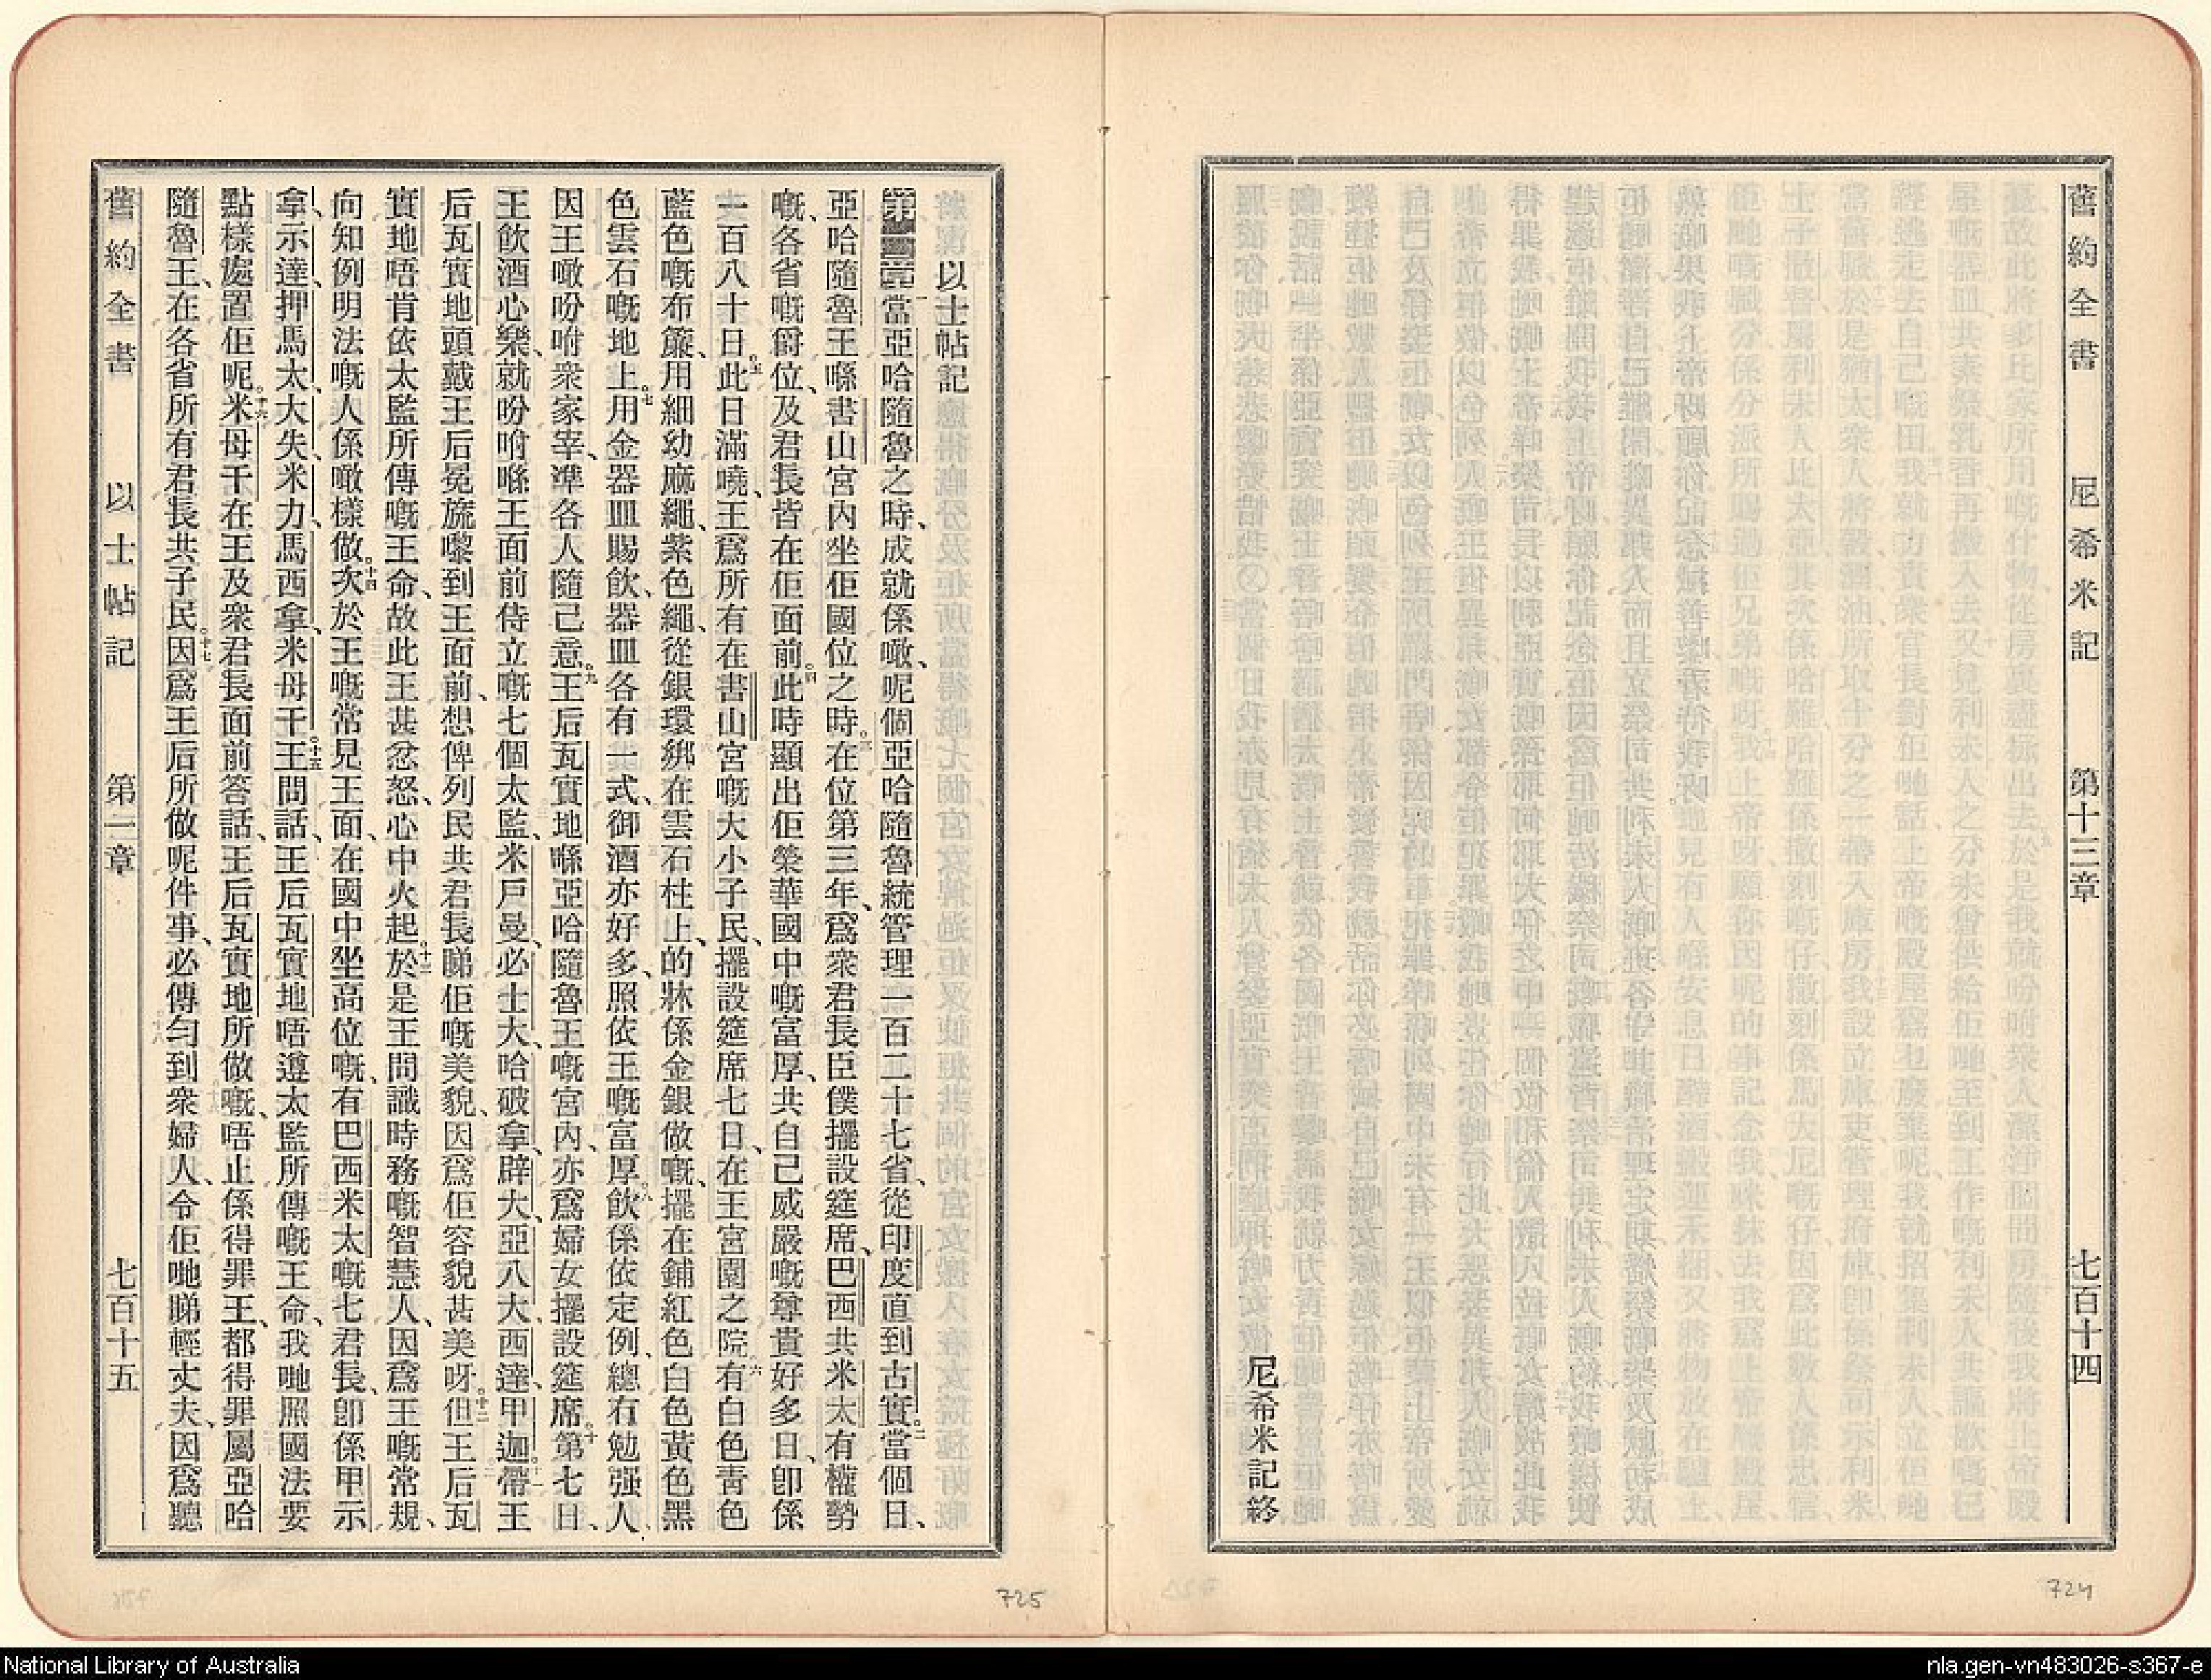 舊約全書 尼希米記 第十三章 七百十四
尼希米記終
以士帖記
第一章 一當亞哈隨魯之時、成就係噉、呢個亞哈隨魯統管理一百二十七省、從印度直到古實。二當個日、
亞哈隨魯王喺書山宮內坐佢國位之時。三在位第三年、爲衆君長臣僕擺設筵席、巴西共米太有權勢
嘅、各省嘅爵位、及君長皆在佢面前。四此時顯出佢榮華國中嘅富厚、共自己威嚴嘅尊貴好多日、卽係
一百八十日。五此日滿嘵、王爲所有在書山宮嘅大小子民、擺設筵席七日、在王宮園之院六有白色青色
藍色嘅布簾、用細幼麻繩、紫色繩、從銀環綁在雲石柱上、的牀係金銀做嘅、擺在鋪紅色白色黃色黑
色雲石嘅地上。七用金器皿賜飲、器皿各有一式、御酒亦好多、照依王嘅富厚。八飲係依定例、總冇勉强人、
因王噉吩咐衆家宰、準各人隨己意。九王后瓦實地喺亞哈隨魯王嘅宮內、亦爲婦女擺設筵席。十第七日、
王飲酒心樂、就吩咐喺王面前侍立嘅七個太監、米戶曼、必士大、哈破拿、辟大、亞八大、西達、甲迦。十一帶王
后瓦實地頭戴王后冕旒嚟到王面前、想俾列民共君長睇佢嘅美貌、因爲佢容貌甚美呀。十二但王后瓦
實地唔肯依太監所傳嘅王命、故此王甚忿怒、心中火起。十三於是王問識時務嘅智慧人、因爲王嘅常規、
向知例明法嘅人係噉樣做。十四次於王嘅常見王面、在國中坐高位嘅、有巴西米太嘅七君長、卽係甲示
拿、示達、押馬太、大失、米力、馬西拿、米母干。十五王問話、王后瓦實地唔遵太監所傳嘅王命、我哋照國法要
點樣處置佢呢。十六米母干在王及衆君長面前答話、王后瓦實地所做嘅、唔止係得罪王、都得罪屬亞哈
隨魯王、在各省所有君長共子民。十七因爲王后所做呢件事、必傳匀到衆婦人、令佢哋睇輕丈夫、因爲聽
舊約全書 以士帖記 第一章 七百十五
725
724
National Library of Australia
nla.gen-vn483026-s367-e